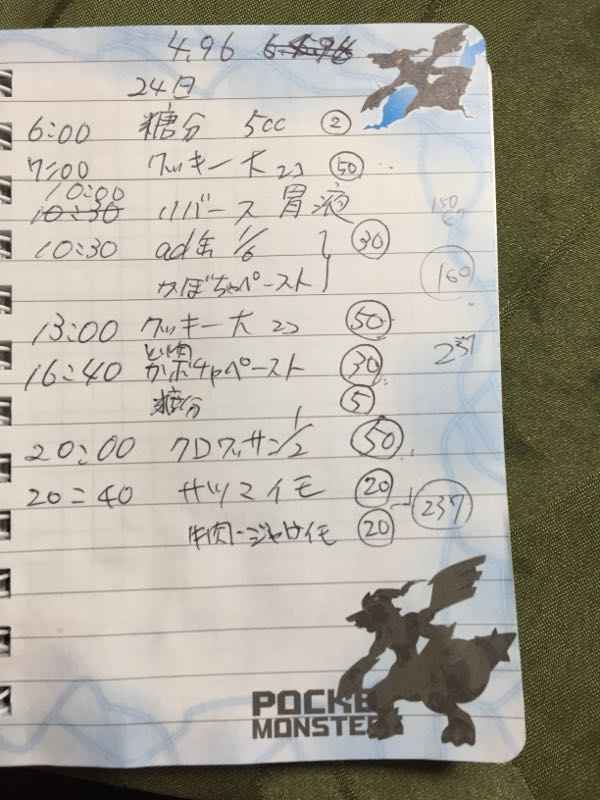 4.96
24日
6:00 糖分 5cc ②
7:00 クッキー大2コ 50
10:00
10:30 リバース 胃液
150
10:30 ad缶 1/6 30
かぼちゃペースト
160
13:00 クッキー大2コ 50
とり肉
237
16:40 カボチャペースト 30
糖分 5
20:00 クロワッサン 1/2 50
20:40 サツマイモ 20
237
牛肉-ジャガイモ 20
POCKE
MONSTE